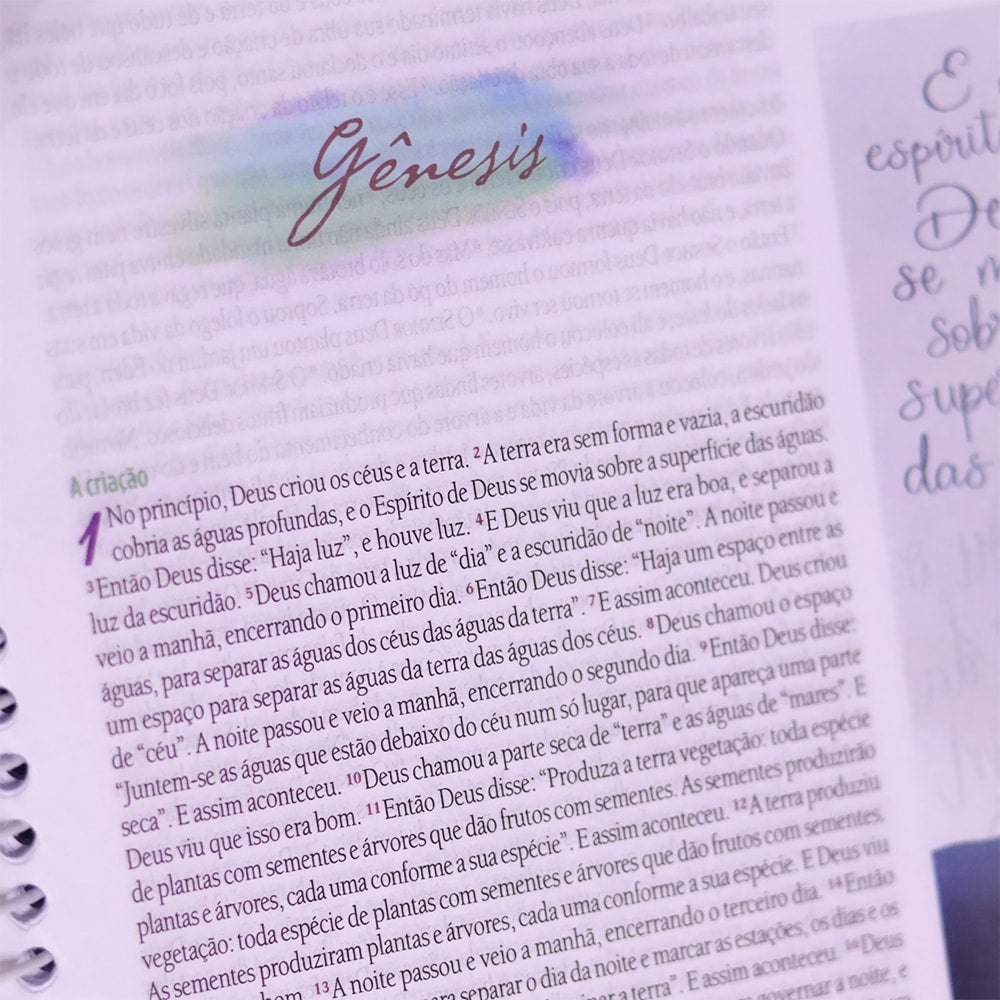 Gênesis
A criação
1 No princípio, Deus criou os céus e a terra. 2 A terra era sem forma e vazia, a escuridão
cobria as águas profundas, e o Espírito de Deus se movia sobre a superfície das águas.
3 Então Deus disse: “Haja luz”, e houve luz. 4 E Deus viu que a luz era boa, e separou a
luz da escuridão. 5 Deus chamou a luz de “dia” e a escuridão de “noite”. A noite passou e
veio a manhã, encerrando o primeiro dia. 6 Então Deus disse: “Haja um espaço entre as
águas, para separar as águas dos céus das águas da terra”. 7 E assim aconteceu. Deus criou
um espaço para separar as águas da terra das águas dos céus. 8 Deus chamou o espaço
de “céu”. A noite passou e veio a manhã, encerrando o segundo dia. 9 Então Deus disse:
“Juntem-se as águas que estão debaixo do céu num só lugar, para que apareça uma parte
seca”. E assim aconteceu. 10 Deus chamou a parte seca de “terra” e as águas de “mares”. E
Deus viu que isso era bom. 11 Então Deus disse: “Produza a terra vegetação: toda espécie
de plantas com sementes e árvores que dão frutos com sementes. As sementes produzirão
plantas e árvores, cada uma conforme a sua espécie”. E assim aconteceu. 12 A terra produziu
vegetação: toda espécie de plantas com sementes e árvores que dão frutos com sementes.
As sementes produziram plantas e árvores, cada uma conforme a sua espécie. E Deus viu
bom. 13 A noite passou e veio a manhã, encerrando o terceiro dia. 14 Então
separar o dia da noite e marcar as estações, os dias e os
a terra”. E assim aconteceu. 16 Deus
governar a noite, e
E
espírit
De
se m
sob
supe
das